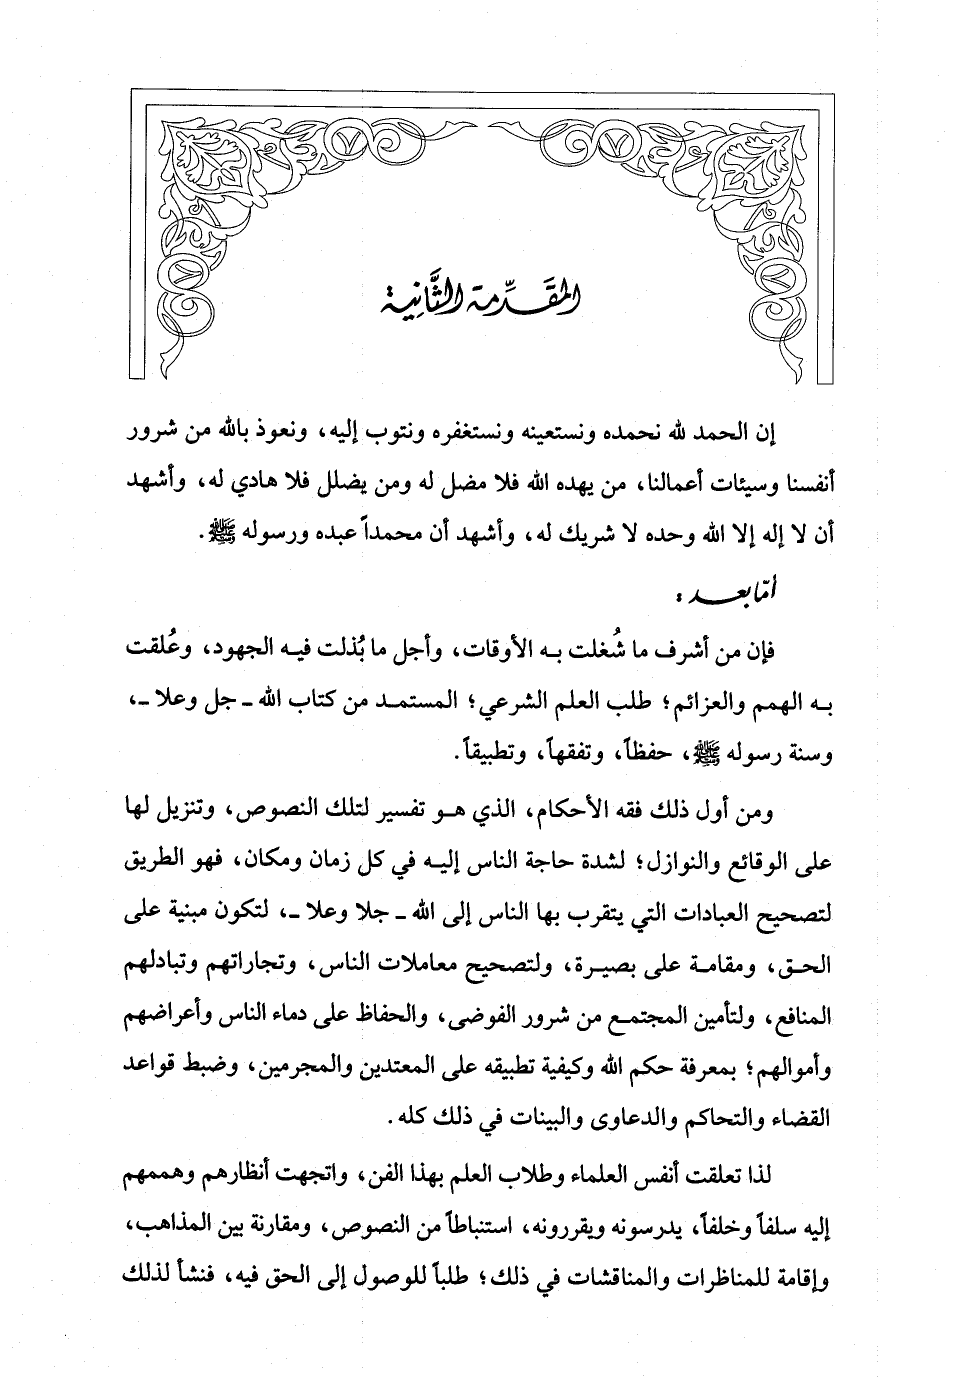 المقَدِّمة الثَّانِية
إن الحمد لله نحمده ونستعينه ونستغفره ونتوب إليه، ونعوذ بالله من شرور
أنفسنا وسيئات أعمالنا، من يهده الله فلا مضل له ومن يضلل فلا هادي له، وأشهد
أن لا إله إلا الله وحده لا شريك له، وأشهد أن محمداً عبده ورسوله ﷺ.
أمّا بعد :
فإن من أشرف ما شُغلت به الأوقات، وأجل ما بُذلت فيه الجهود، وعُلقت
به الهمم والعزائم؛ طلب العلم الشرعي؛ المستمد من كتاب الله ـ جل وعلا ـ،
وسنة رسوله ﷺ، حفظاً، وتفقهاً، وتطبيقاً.
ومن أول ذلك فقه الأحكام، الذي هو تفسير لتلك النصوص، وتنزيل لها
على الوقائع والنوازل؛ لشدة حاجة الناس إليه في كل زمان ومكان، فهو الطريق
لتصحيح العبادات التي يتقرب بها الناس إلى الله ـ جلا وعلا ـ، لتكون مبنية على
الحق، ومقامة على بصيرة، ولتصحيح معاملات الناس، وتجاراتهم وتبادلهم
المنافع، ولتأمين المجتمع من شرور الفوضى، والحفاظ على دماء الناس وأعراضهم
وأموالهم؛ بمعرفة حكم الله وكيفية تطبيقه على المعتدين والمجرمين، وضبط قواعد
القضاء والتحاكم والدعاوى والبينات في ذلك كله.
لذا تعلقت أنفس العلماء وطلاب العلم بهذا الفن، واتجهت أنظارهم وهممهم
إليه سلفاً وخلفاً، يدرسونه ويقررونه، استنباطاً من النصوص، ومقارنة بين المذاهب،
وإقامة للمناظرات والمناقشات في ذلك؛ طلباً للوصول إلى الحق فيه، فنشأ لذلك